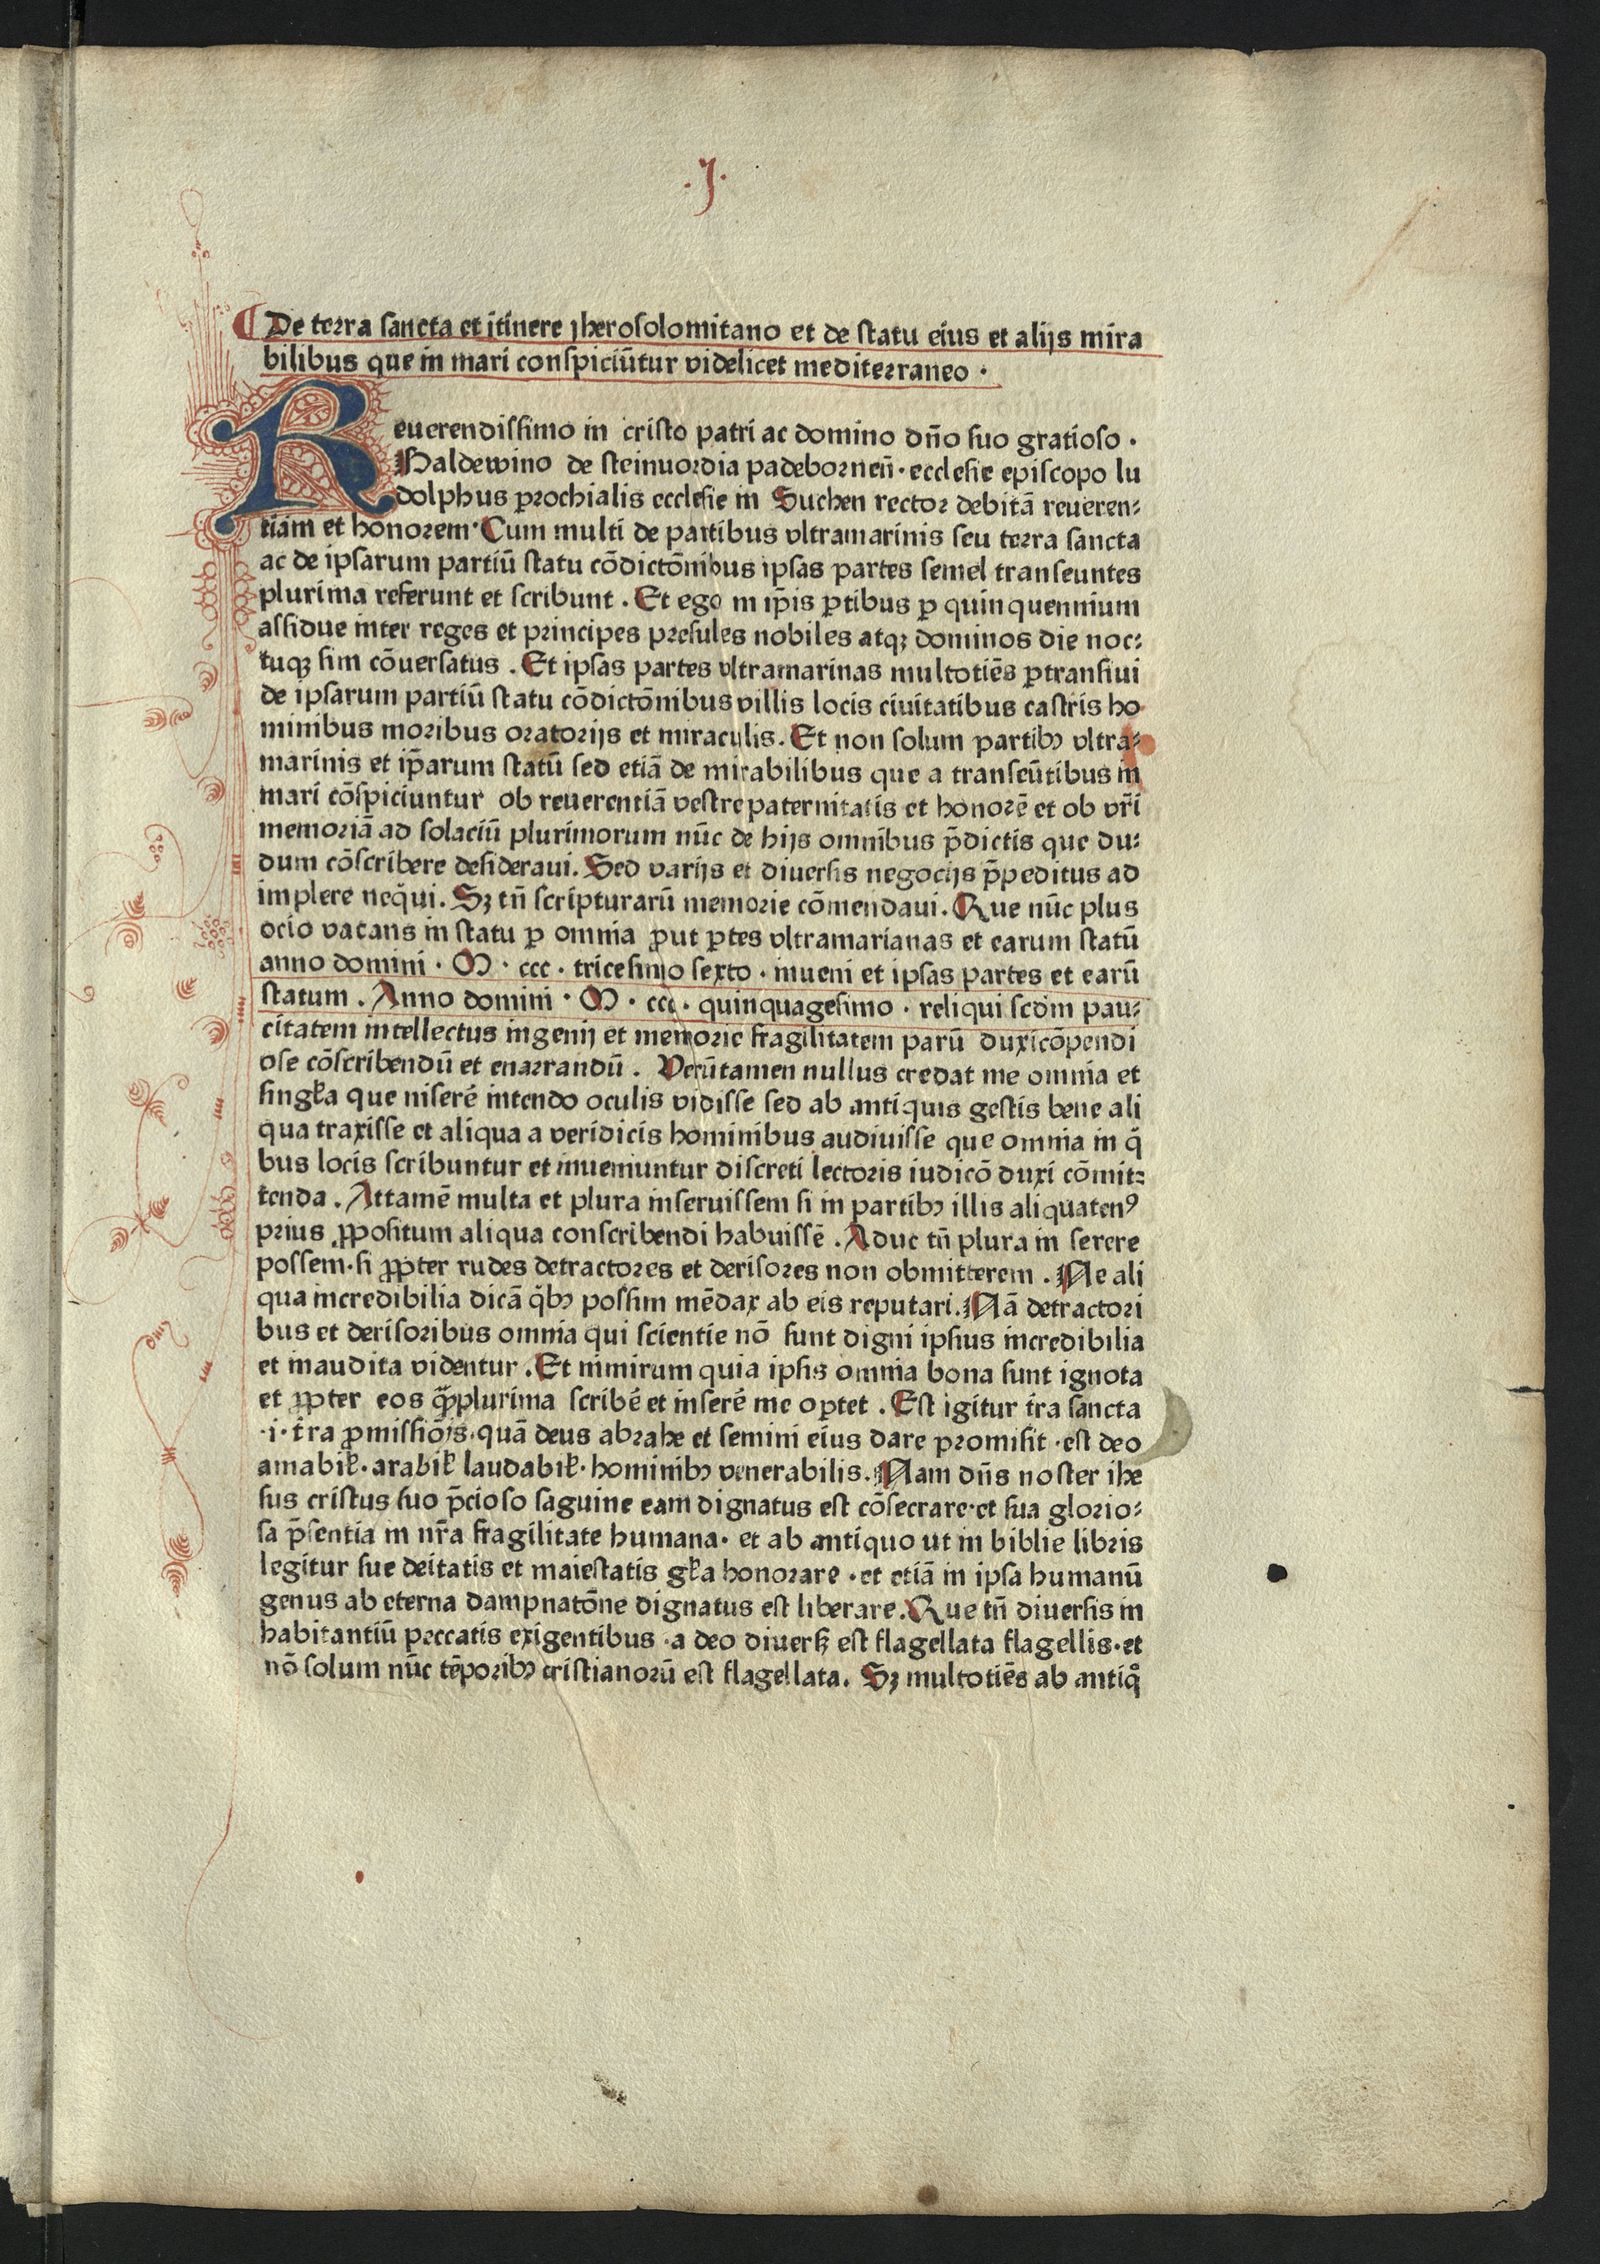 ·j·
De terra sancta et itinere jherosolomitano et de statu eius et alijs mira
bilibus que in mari conspiciūtur videlicet mediterraneo ·
Reuerendissimo in cristo patri ac domino dño suo gratioso ·
Baldewino de steinuordia padebornen̄· ecclesie episcopo lu
dolphus ꝑrochialis ecclesie in Suchen rector debitā reueren⸗
tiam et honorem· Cum multi de partibus vltramarinis seu terra sancta
ac de ipsarum partiū statu cōdictōnibus ipsas partes semel transeuntes
plurima referunt et scribunt . Et ego in ip̄is ꝑtibus ꝑ quinquennium
assidue inter reges et principes presules nobiles atqꝫ dominos die noc⸗
tuqꝫ sim cōuersatus . Et ipsas partes vltramarinas multotiēs ꝑtransiui
de ipsarum partiū statu cōdictōnibus villis locis ciuitatibus castris ho
minibus moribus oratorijs et miraculis. Et non solum partibꝰ vltra⸗
marinis et ip̄arum statū sed etiā de mirabilibus que a transeūtibus in
mari cōspiciuntur ob reuerentiā vestre paternitatis et honorē et ob vr̄i
memoriā ad solaciū plurimorum nūc de hijs omnibus p̄dictis que du⸗
dum cōscribere desideraui. Sed varijs et diuersis negocijs p̄peditus ad
implere neq̄ui. Sꝫ tn̄ scripturarū memorie cōmendaui. Que nūc plus
ocio vacans in statu ꝑ omnia ꝓut ꝑtes vltramarianas et earum statū
anno domini · M · ccc · tricesimo sexto · inueni et ipsas partes et earū
statum . Anno domini · M · ccc · quinquagesimo · reliqui scdm̄ pau⸗
citatem intellectus ingenij et memorie fragilitatem parū duxi cōpendi
ose cōscribendū et enarrandū . Verūtamen nullus credat me omnia et
singl̄a que niserē intendo oculis vidisse sed ab antiquis gestis bene ali
qua traxisse et aliqua a veridicis hominibus audiuisse que omnia in q̄
bus locis scribuntur et inueniuntur discreti lectoris iudicō duxi cōmit⸗
tenda . Attamē multa et plura inseruissem si in partibꝰ illis aliquatenꝰ
prius ꝓpositum aliqua conscribendi habuissē . Aduc tn̄ plura in serere
possem· si ꝓpter rudes detractores et derisores non obmitterem . Ne ali
qua incredibilia dicā q̄bꝰ possim mēdax ab eis reputari. Nā detractori
bus et derisoribus omnia qui scientie nō sunt digni ipsius incredibilia
et inaudita videntur . Et nimirum quia ipsis omnia bona sunt ignota
et ꝓpter eos q̄ꝫplurima scribē et inserē me oꝑtet . Est igitur t̄ra sancta
·i· t̄ra ꝓmissiōis· quā deus abrahe et semini eius dare promisit · est deo
amabil̄· arabil̄ laudabil̄· hominibꝰ venerabilis. Nam dn̄s noster ihe
sus cristus suo p̄cioso saguine eam dignatus est cōsecrare· et sua glorio⸗
sa p̄sentia in nr̄a fragilitate humana· et ab antiquo ut in biblie libris
legitur sue deitatis et maiestatis gl̄a honorare · et etiā in ipsa humanū
genus ab eterna dampnatōne dignatus est liberare. Que tn̄ diuersis in
habitantiū peccatis exigentibus · a deo diuersꝫ est flagellata flagellis· et
nō solum nūc tēporibꝰ cristianorū est flagellata. Sꝫ multotiēs ab antiqͦ